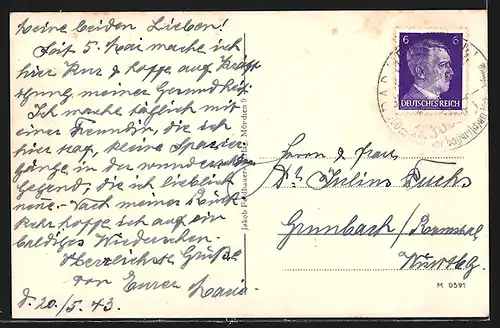 Meine beiden Lieben!
Seit 5. Mai mache ich
hier Kur & hoffe auf Kräfti-
gung meiner Gesundheit.
Ich mache täglich mit
einer Freundin, die ich
hier traf, kleine Spazier-
gänge in der wunderschön
Gegend, die ich lieblich
nenne. Nach meiner Rück-
kehr hoffe ich auf ein
baldiges Wiedersehen.
Herzlichste Grüße
von Eurer Maria
d. 20./5. 43.
Jakob München 9
6 6
DEUTSCHES REICH
BAD
Herrn & Frau
Dr. Julius Fuchs
Grunbach/Remstal
Württbg.
M 0591